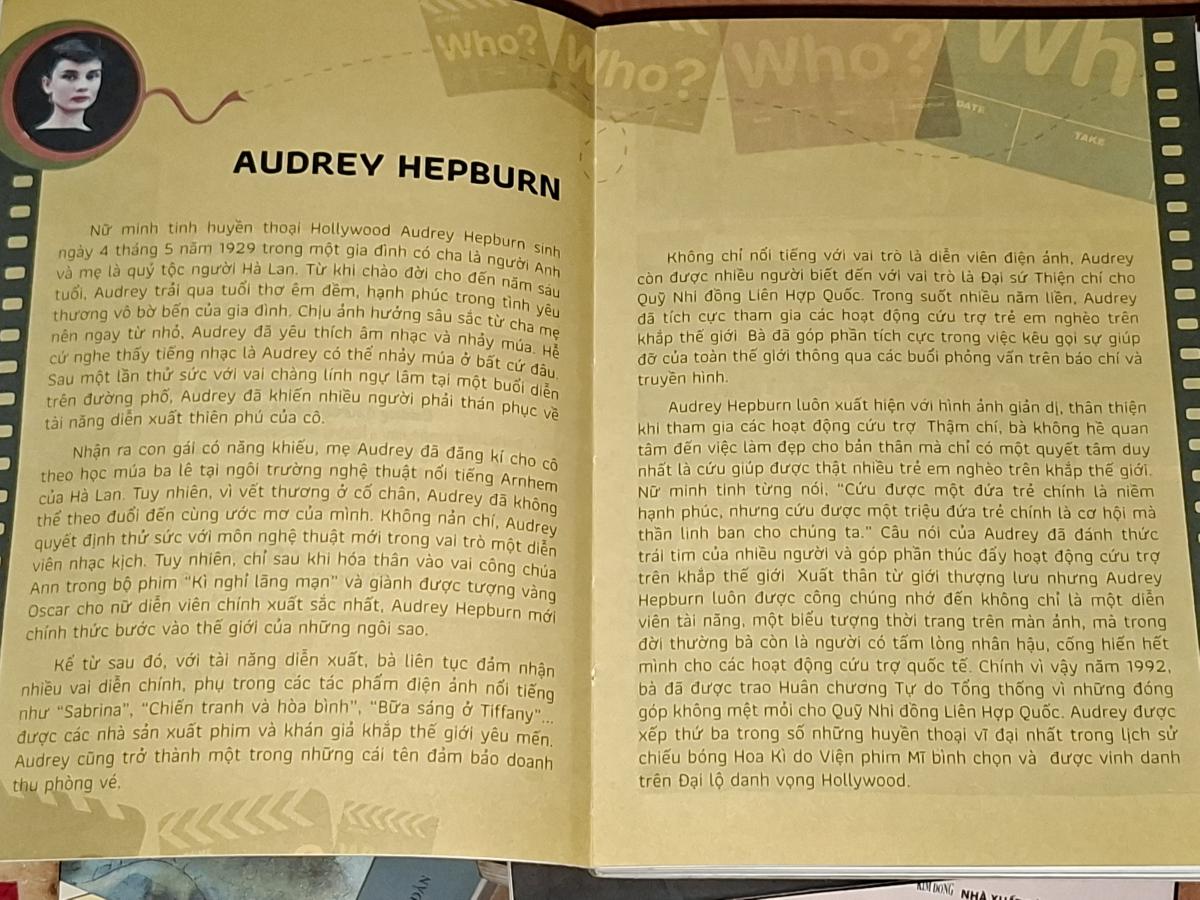 Who?
Who?
Who?
Wh
DATE
TAKE
AUDREY HEPBURN
Nữ minh tinh huyền thoại Hollywood Audrey Hepburn sinh
ngày 4 tháng 5 năm 1929 trong một gia đình có cha là người Anh
và mẹ là quý tộc người Hà Lan. Từ khi chào đời cho đến năm sáu
tuổi, Audrey trải qua tuổi thơ êm đềm, hạnh phúc trong tình yêu
thương vô bờ bến của gia đình. Chịu ảnh hưởng sâu sắc từ cha mẹ
nên ngay từ nhỏ, Audrey đã yêu thích âm nhạc và nhảy múa. Hễ
cứ nghe thấy tiếng nhạc là Audrey có thể nhảy múa ở bất cứ đâu.
Sau một lần thử sức với vai chàng lính ngự lâm tại một buổi diễn
trên đường phố, Audrey đã khiến nhiều người phải thán phục về
tài năng diễn xuất thiên phú của cô.
Nhận ra con gái có năng khiếu, mẹ Audrey đã đăng kí cho cô
theo học múa ba lê tại ngôi trường nghệ thuật nổi tiếng Arnhem
của Hà Lan. Tuy nhiên, vì vết thương ở cổ chân, Audrey đã không
thể theo đuổi đến cùng ước mơ của mình. Không nản chí, Audrey
quyết định thử sức với môn nghệ thuật mới trong vai trò một diễn
viên nhạc kịch. Tuy nhiên, chỉ sau khi hóa thân vào vai công chúa
Ann trong bộ phim “Kì nghỉ lãng mạn” và giành được tượng vàng
Oscar cho nữ diễn viên chính xuất sắc nhất, Audrey Hepburn mới
chính thức bước vào thế giới của những ngôi sao.
Kể từ sau đó, với tài năng diễn xuất, bà liên tục đảm nhận
nhiều vai diễn chính, phụ trong các tác phẩm điện ảnh nổi tiếng
như “Sabrina”, “Chiến tranh và hòa bình”, “Bữa sáng ở Tiffany”...
được các nhà sản xuất phim và khán giả khắp thế giới yêu mến.
Audrey cũng trở thành một trong những cái tên đảm bảo doanh
thu phòng vé.
Không chỉ nổi tiếng với vai trò là diễn viên điện ảnh, Audrey
còn được nhiều người biết đến với vai trò là Đại sứ Thiện chí cho
Quỹ Nhi đồng Liên Hợp Quốc. Trong suốt nhiều năm liền, Audrey
đã tích cực tham gia các hoạt động cứu trợ trẻ em nghèo trên
khắp thế giới Bà đã góp phần tích cực trong việc kêu gọi sự giúp
đỡ của toàn thế giới thông qua các buổi phỏng vấn trên báo chí và
truyền hình.
Audrey Hepburn luôn xuất hiện với hình ảnh giản dị, thân thiện
khi tham gia các hoạt động cứu trợ Thậm chí, bà không hề quan
tâm đến việc làm đẹp cho bản thân mà chỉ có một quyết tâm duy
nhất là cứu giúp được thật nhiều trẻ em nghèo trên khắp thế giới.
Nữ minh tinh từng nói, “Cứu được một đứa trẻ chính là niềm
hạnh phúc, nhưng cứu được một triệu đứa trẻ chính là cơ hội mà
thần linh ban cho chúng ta.” Câu nói của Audrey đã đánh thức
trái tim của nhiều người và góp phần thúc đẩy hoạt động cứu trợ
trên khắp thế giới Xuất thân từ giới thượng lưu nhưng Audrey
Hepburn luôn được công chúng nhớ đến không chỉ là một diễn
viên tài năng, một biểu tượng thời trang trên màn ảnh, mà trong
đời thường bà còn là người có tấm lòng nhân hậu, cống hiến hết
mình cho các hoạt động cứu trợ quốc tế. Chính vì vậy năm 1992,
bà đã được trao Huân chương Tự do Tổng thống vì những đóng
góp không mệt mỏi cho Quỹ Nhi đồng Liên Hợp Quốc. Audrey được
xếp thứ ba trong số những huyền thoại vĩ đại nhất trong lịch sử
chiếu bóng Hoa Kì do Viện phim Mĩ bình chọn và được vinh danh
trên Đại lộ danh vọng Hollywood.
KIM ĐỒNG